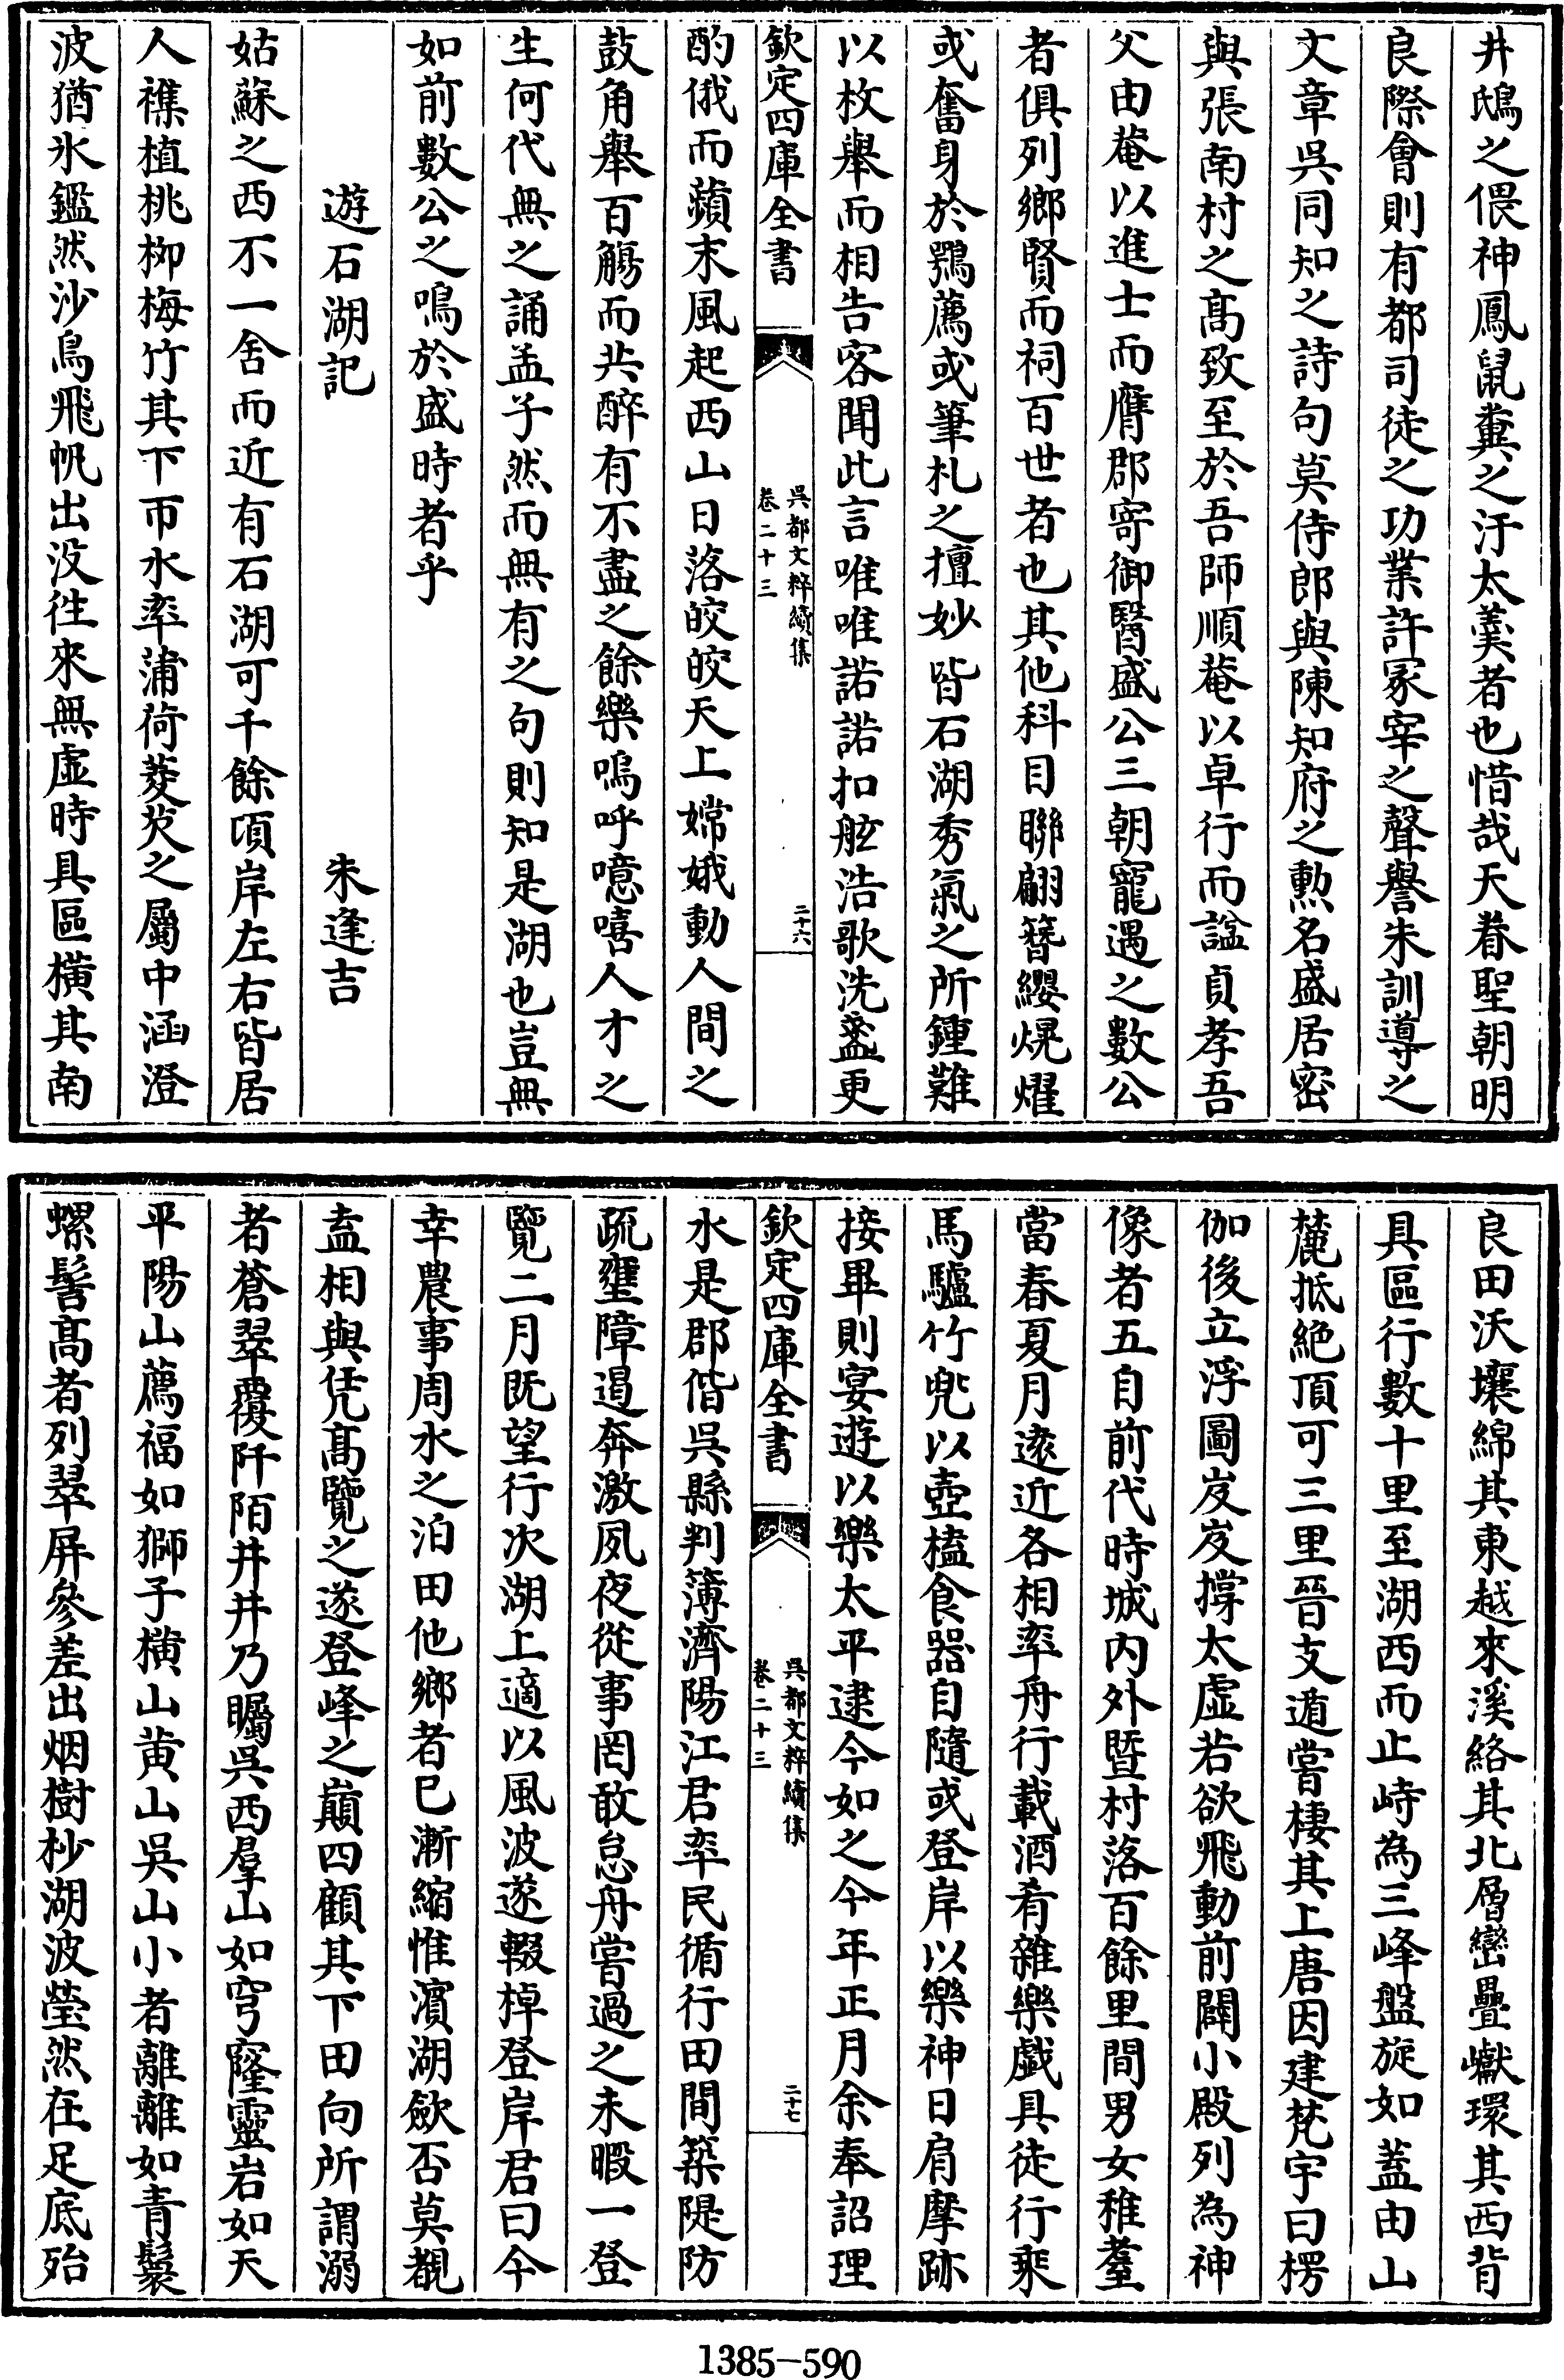 井鴟之偎神鳳鼠糞之汙太羮者也惜哉天眷聖朝明
良際會則有都司徒之功業許冢宰之聲譽朱訓導之
文章吳同知之詩句莫侍郎與陳知府之勲名盛居密
與張南村之髙致至於吾師順菴以卓行而諡貞孝吾
父由菴以進士而膺郡寄御醫盛公三朝寵遇之數公
者俱列鄉賢而祠百世者也其他科目聯翩簪纓焜燿
或奮身於鶚薦或筆札之擅妙皆石湖秀氣之所鍾難
以枚舉而相告客聞此言唯唯諾諾扣舷浩歌洗盞更
欽定四庫全書
吳都文粹續集
卷二十三
二十六
酌俄而蘋末風起西山日落皎皎天上嫦娥動人間之
鼓角舉百觴而共醉有不盡之餘樂嗚呼噫嘻人才之
生何代無之誦孟子然而無有之句則知是湖也豈無
如前數公之鳴於盛時者乎
遊石湖記
朱逢吉
姑蘇之西不一舍而近有石湖可千餘頃岸左右皆居
人襍植桃栁梅竹其下帀水率蒲荷菱芡之屬中涵澄
波猶氷鑑然沙鳥飛帆出没徃來無虚時具區橫其南
良田沃壤綿其東越來溪絡其北層巒疊巘環其西背
具區行數十里至湖西而止峙為三峰盤旋如蓋由山
麓抵絶頂可三里晉支遁嘗棲其上唐因建梵宇曰楞
伽後立浮圖岌岌撐太虚若欲飛動前闢小殿列為神
像者五自前代時城内外暨村落百餘里間男女稚耋
當春夏月逺近各相率舟行載酒肴雜樂戯具徒行乘
馬驢竹兜以壺榼食器自隨或登岸以樂神日肩摩跡
接畢則宴遊以樂太平逮今如之今年正月余奉詔理
欽定四庫全書
吳都文粹續集
卷二十三
二十七
水是郡偕吳縣判簿濟陽江君率民循行田間築隄防
疏壅障遏奔激夙夜從事罔敢怠舟嘗過之未暇一登
覽二月既望行次湖上適以風波遂輟棹登岸君曰今
幸農事周水之泊田他鄉者已漸縮惟濵湖歛否莫覩
盍相與凭髙覽之遂登峰之巔四顧其下田向所謂溺
者蒼翠覆阡陌井井乃矚吳西羣山如穹窿靈岩如天
平陽山薦福如獅子橫山黄山吳山小者離離如青鬟
螺髻髙者列翠屏參差出烟樹杪湖波瑩然在足底殆
1385-590